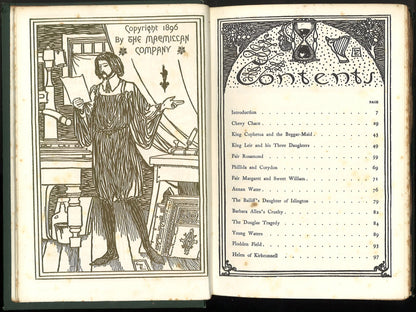 Copyright 1896
By THE MACMILLAN
COMPANY
Contents
PAGE
Introduction . 7
Chevy Chace . 29
King Cophetua and the Beggar-Maid . 43
King Leir and his Three Daughters . 49
Fair Rosamond . 59
Phillida and Corydon . 69
Fair Margaret and Sweet William . 71
Annan Water . 76
The Bailiff's Daughter of Islington . 79
Barbara Allen's Cruelty . 82
The Douglas Tragedy . 84
Young Waters . 89
Flodden Field . 93
Helen of Kirkconnell . 97